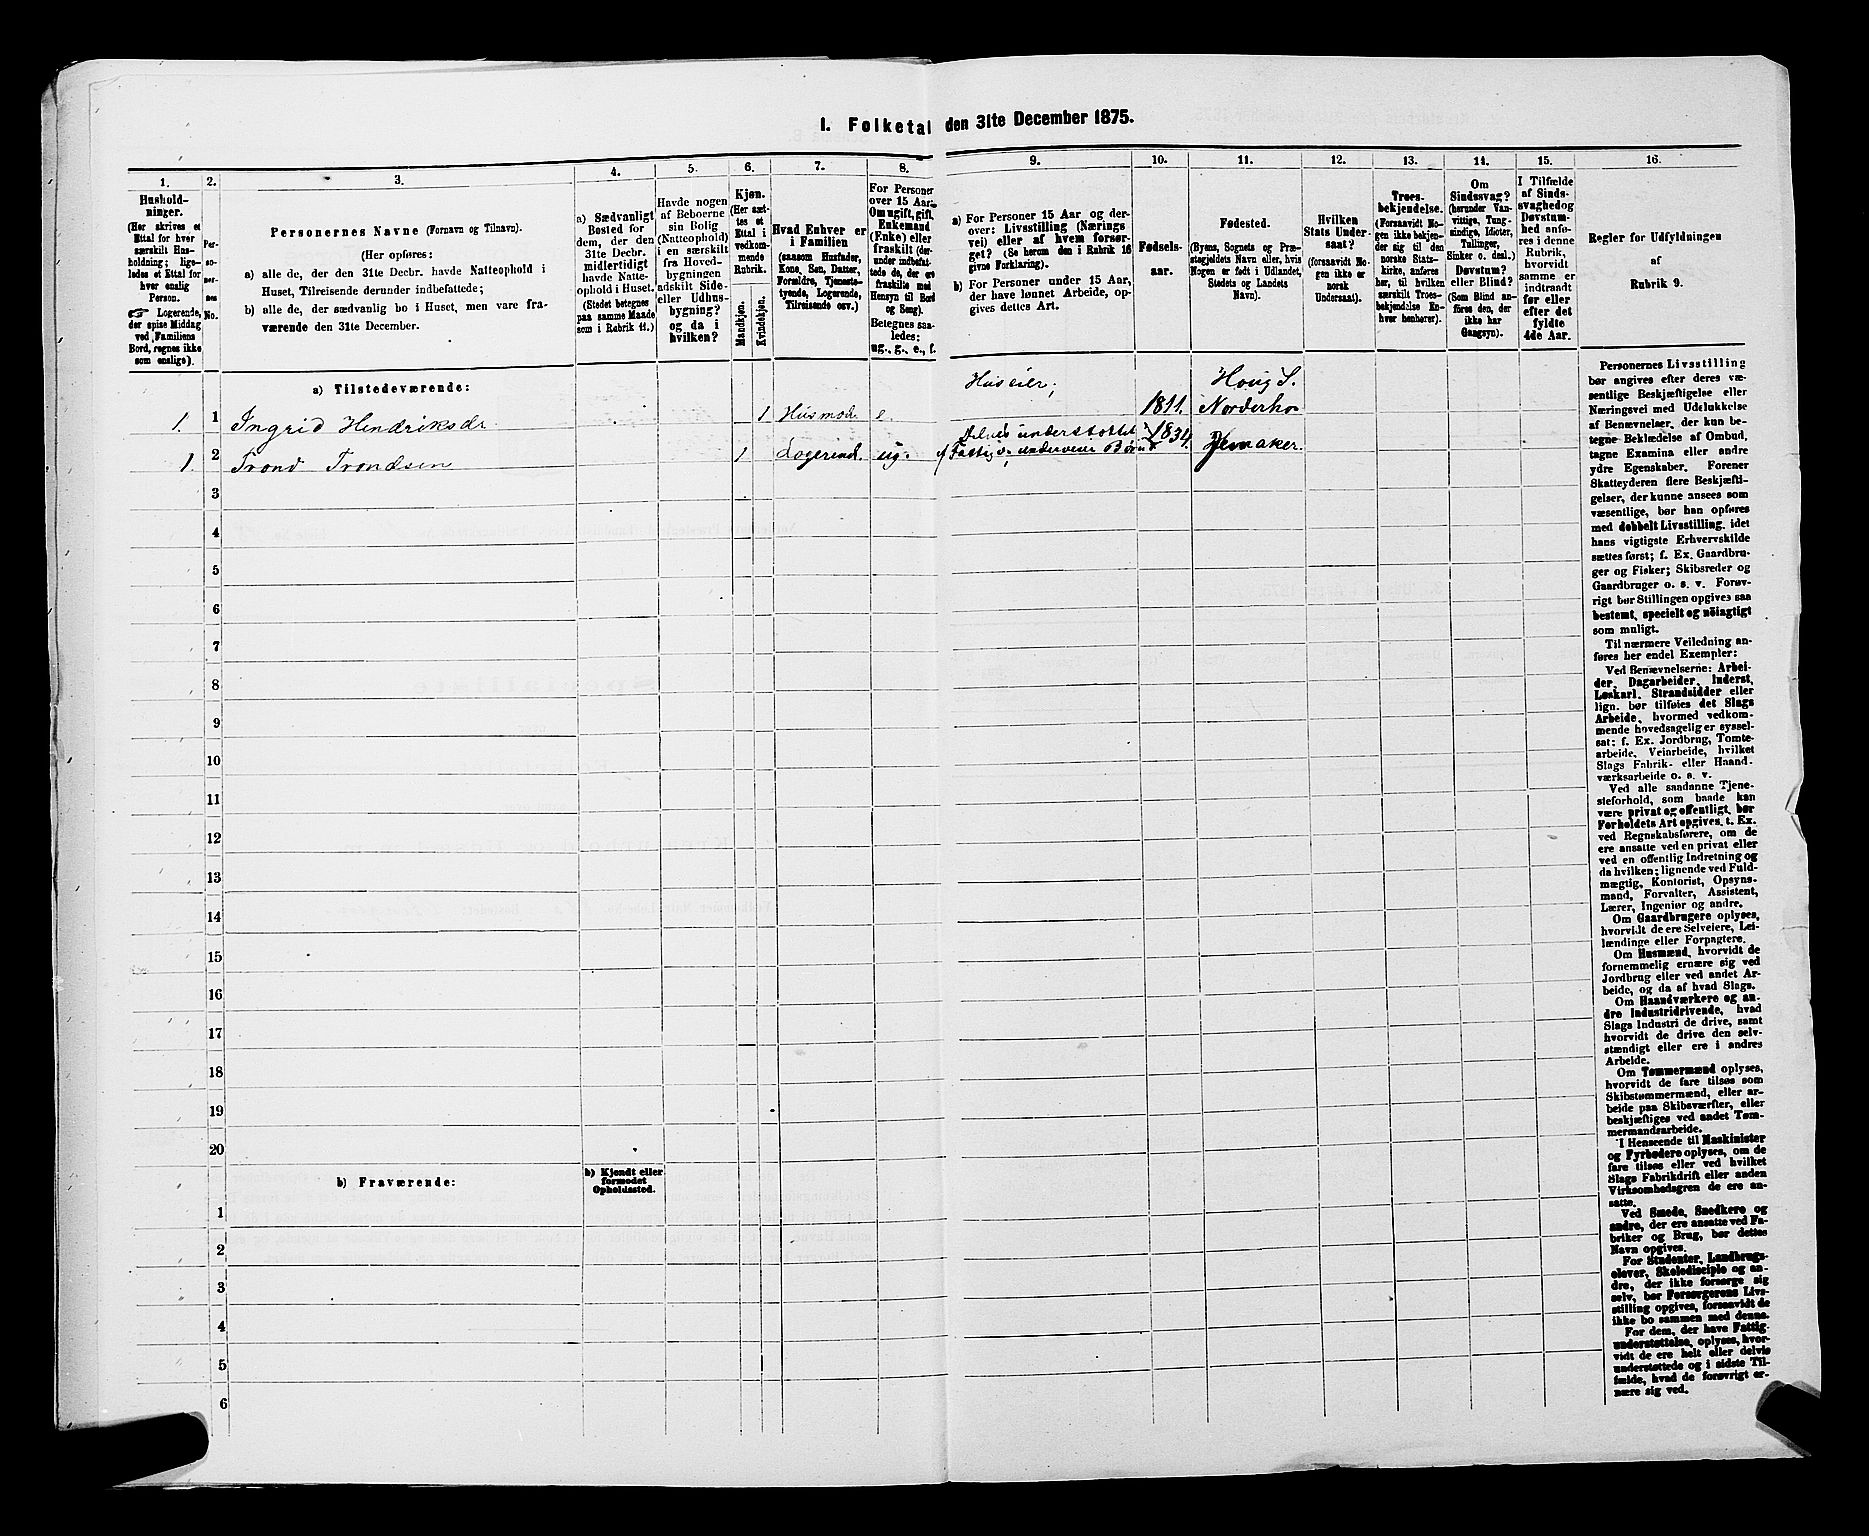 I. Folketal den 31te December 1875.
1.
2.
3.
4.
5.
6.
7.
8.
9.
10.
11.
12.
13.
14.
15.
16.
Hushold-
ninger.
(Her skrives et
Ettal for hver
særskilt Hus-
holdning; lige-
ledes et Ettal for
hver enslig
Person.
☞ Logerende,
der spise Middag
ved Familiens
Bord, regnes ikke
som enslige).
Per-
so-
ner-
nes
No.
Personernes Navne (Fornavn og Tilnavn).
(Her opføres:
a) alle de, der den 31te Decbr. havde Natteophold i
Huset, Tilreisende derunder indbefattede;
b) alle de, der sædvanlig bo i Huset, men vare fra-
værende den 31te December.
a) Sædvanligt
Bosted for
dem, der den
31te Decbr.
midlertidigt
havde Natte-
ophold i Huset.
(Stedet betegnes
paa samme Maade
som i Rubrik 11.)
Havde nogen
af Beboerne
sin Bolig
(Natteophold)
i en særskilt
fra Hoved-
bygningen
adskilt Side-
eller Udhus-
bygning?
og da i
hvilken?
Kjøn.
(Her sæt-
tes et
Ettal i
vedkom-
mende
Rubrik.
Mandkjøn.
Kvindekjøn.
Hvad Enhver er
i Familien
(saasom Husfader,
Kone, Søn, Datter,
Forældre, Tjeneste-
tyende, Logerende,
Tilreisende osv.)
For Personer
over 15 Aar:
Om ugift, gift,
Enkemand
(Enke) eller
fraskilt (der-
under indbefat-
tede de, der ere
fraskilte med
Hensyn til Bord
og Seng).
Betegnes saa-
ledes:
ug., g., e., f.
a) For Personer 15 Aar og der-
over: Livsstilling (Nærings
vei) eller af hvem forsør-
get? (Se herom den i Rubrik 16
givne Forklaring).
b) For Personer under 15 Aar,
der have lønnet Arbeide, op-
gives dettes Art.
Fødsels-
aar.
Fødested.
(Byens, Sognets og Præ-
stegjeldets Navn eller, hvis
Nogen er født i Udlandet,
Stedets og Landets
Navn).
Hvilken
Stats Under-
saat?
(forsaavidt No-
gen ikke er
norsk
Undersaat).
Troes-
bekjendelse.
(Forsaavidt No-
gen ikke bekjen-
der sig til den
norske Stats-
kirke, anføres
her, til hvilken
særskilt Troes-
bekjendelse En-
hver henhører).
Om
Sindssvag?
(herunder Van-
vittige, Tung-
sindige, Idioter,
Tullinger,
Sinker o. desl.)
Døvstum?
eller Blind?
(Som Blind an-
føres den, der
ikke har
Gangsyn).
I Tilfælde
af Sinds-
svaghed og
Døvstum-
hed anfø-
res i denne
Rubrik,
hvorvidt
samme er
indtraadt
før eller
efter det
fyldte
4de Aar.
Regler for Udfyldningen
af
Rubrik 9.
a) Tilstedeværende:
1. 1 Ingrid Hendriksdr 1 Husmod. e. Huseier; 1811. Houg S. Norderho
1 2 Trond Trondsen 1 Logerend. ug. Delvis understøttet 1834. Hemaker.
3
4
5
6
7
8
9
10
11
12
13
14
15
16
17
18
19
20
b) Fraværende:
b) Kjendt eller
formodet
Opholdssted.
1
2
3
4
5
6
Personernes Livsstilling
bør angives efter deres væ-
sentlige Beskjæftigelse eller
Næringsvei med Udelukkelse
af Benævnelser, der kun be-
tegne Beklædelse af Ombud,
tagne Examina eller andre
ydre Egenskaber. Forener
Skatteyderen flere Beskjæfti-
gelser, der kunne ansees som
væsentlige, bør han opføres
med dobbelt Livsstilling, idet
hans vigtigste Erhvervskilde
sættes først; f. Ex. Gaardbru-
ger og Fisker; Skibsreder og
Gaardbruger o. s. v. Forøv-
rigt bør Stillingen opgives saa
bestemt, specielt og nöiagtigt
som muligt.
Til nærmere Veiledning an-
føres her endel Exempler:
Ved Benævnelserne: Arbei-
der, Dagarbeider, Inderst,
Løskarl, Strandsidder eller
lign. bør tilføies det Slags
Arbeide, hvormed vedkom-
mende hovedsagelig er syssel-
sat; f. Ex. Jordbrug, Tomte-
arbeide, Veiarbeide, hvilket
Slags Fabrik- eller Haand-
værksarbeide o. s. v.
Ved alle saadanne Tjene-
steforhold, som baade kan
være privat og offentligt, bør
Forholdets Art opgives, t. Ex.
ved Regnskabsførere, om de
ere ansatte ved en privat eller
ved en offentlig Indretning og
da hvilken; lignende ved Fuld-
mægtig, Kontorist, Opsyns-
mand, Forvalter, Assistent,
Lærer, Ingeniør og andre.
Om Gaardbrugere oplyses,
hvorvidt de ere Selveiere, Lei-
lændinge eller Forpagtere.
Om Husmænd, hvorvidt de
fornemmelig ernære sig ved
Jordbrug eller ved andet Ar-
beide, og da af hvad Slags.
Om Haandværkere og an-
dre Industridrivende, hvad
Slags Industri de drive, samt
hvorvidt de drive den selv-
stændigt eller ere i andres
Arbeide.
Om Tømmermænd oplyses,
hvorvidt de fare tilsøs som
Skibstømmermænd, eller ar-
beide paa Skibsværfter, eller
beskjæftiges ved andet Tøm-
mermandsarbeide.
I Henseende til Maskinister
og Fyrbødere oplyses, om de
fare tilsøs eller ved hvilket
Slags Fabrikdrift eller anden
Virksomhedsgren de ere an-
satte.
Ved Smede, Snedkere og
andre, der ere ansatte ved Fa-
briker og Brug, bør dettes
Navn opgives.
For Studenter, Landbrugs-
elever, Skoledisciple og an-
dre, der ikke forsørge sig
selv, bør Forsørgerens Livs-
stilling opgives, forsaavidt de
ikke bo sammen med denne.
For dem, der have Fattig-
understøttelse, oplyses, hvor-
vidt de ere helt eller delvis
understøttede og i sidste Til-
fælde, hvad de forøvrigt er-
nære sig ved.